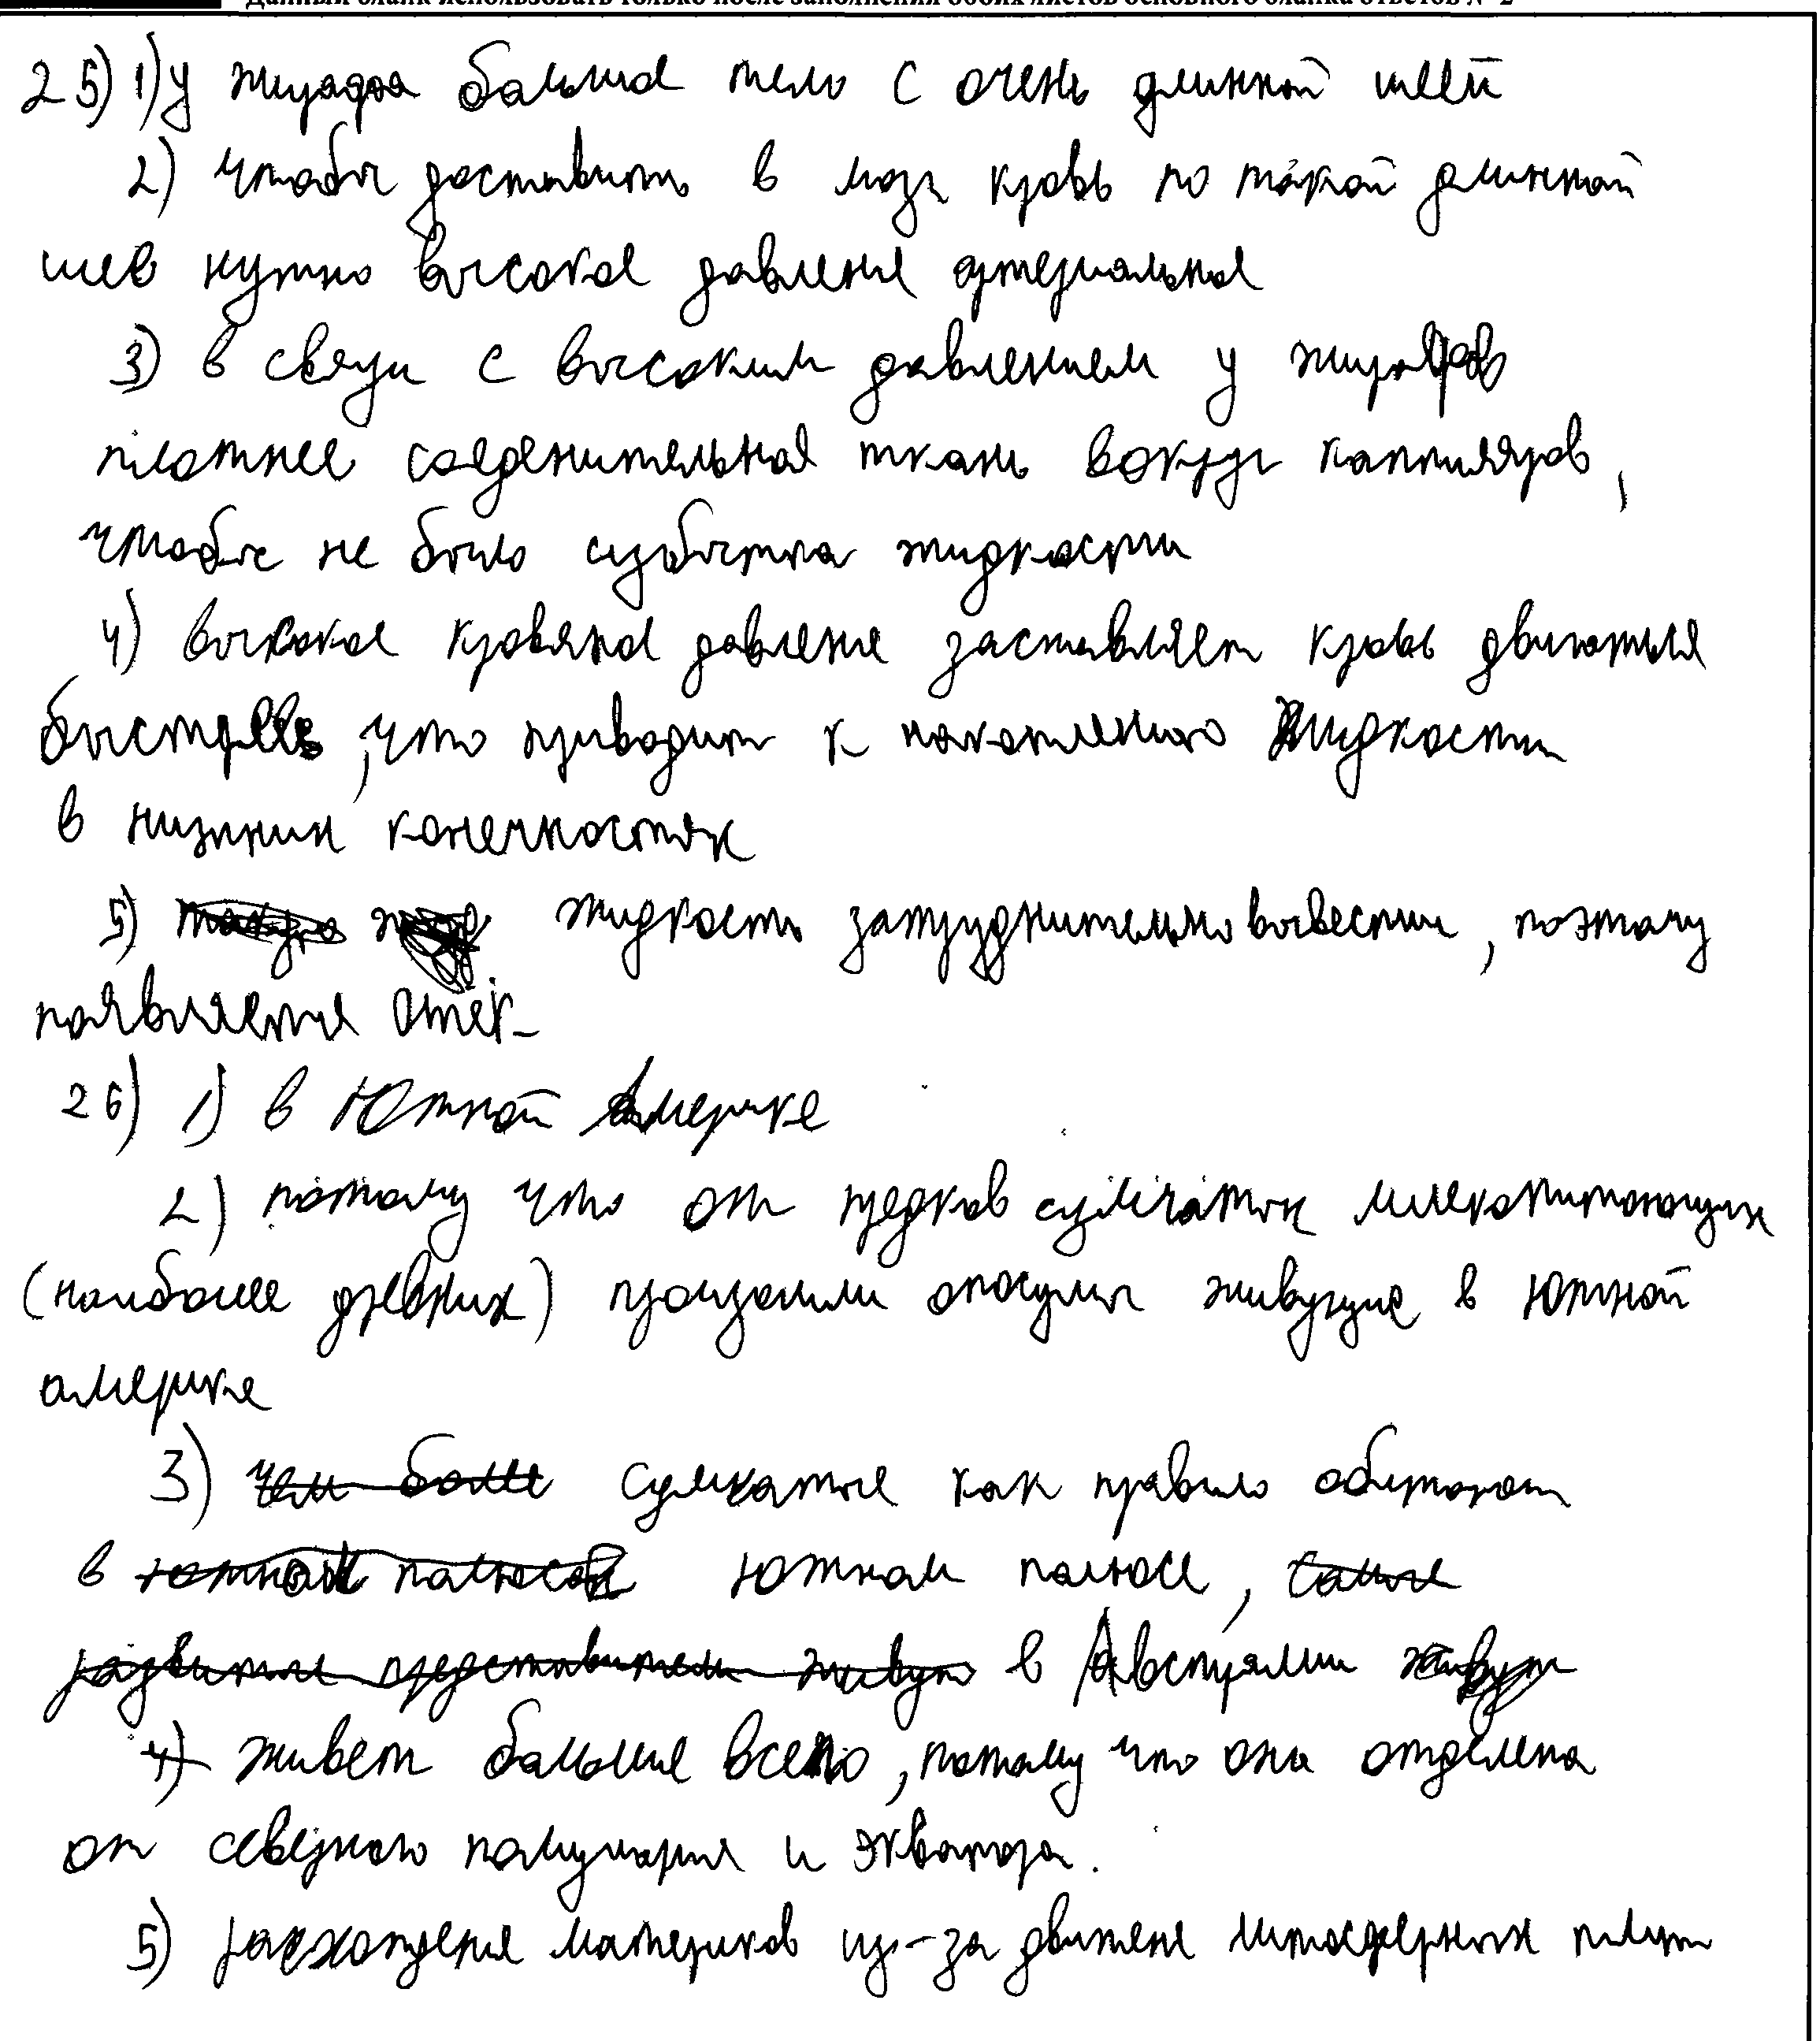 Данный бланк использовать только после заполнения обоих листов основного бланка ответов № 2
25) 1) у жирафа большое тело с очень длинной шеей
2) чтобы доставить в мозг кровь по такой длинной
шее нужно высокое давление артериальное
3) в связи с высоким давлением у жирафов
плотнее соеденительная ткань вокруг каппиляров,
чтобы не было избытка жидкости
4) высокое кровяное давление заставляет кровь двигаться
быстрее, что приводит к накоплению жидкости
в нижних конечностях
5) жидкость затруднительно вывести, поэтому
появляется отёк.
26) 1) в Южной Америке
2) потому что от предков сумчатых млекопитающих
(наиболее древних) произошли опосумы живущие в южной
америке
3) чем более сумчатые как правило обитают
в южном полюсе, самые
развитые представители живут в Австралии живут
4) живет больше всего, потому что она отделена
от северного полушария и экватора.
5) расхождение материков из-за движение литосферных плит